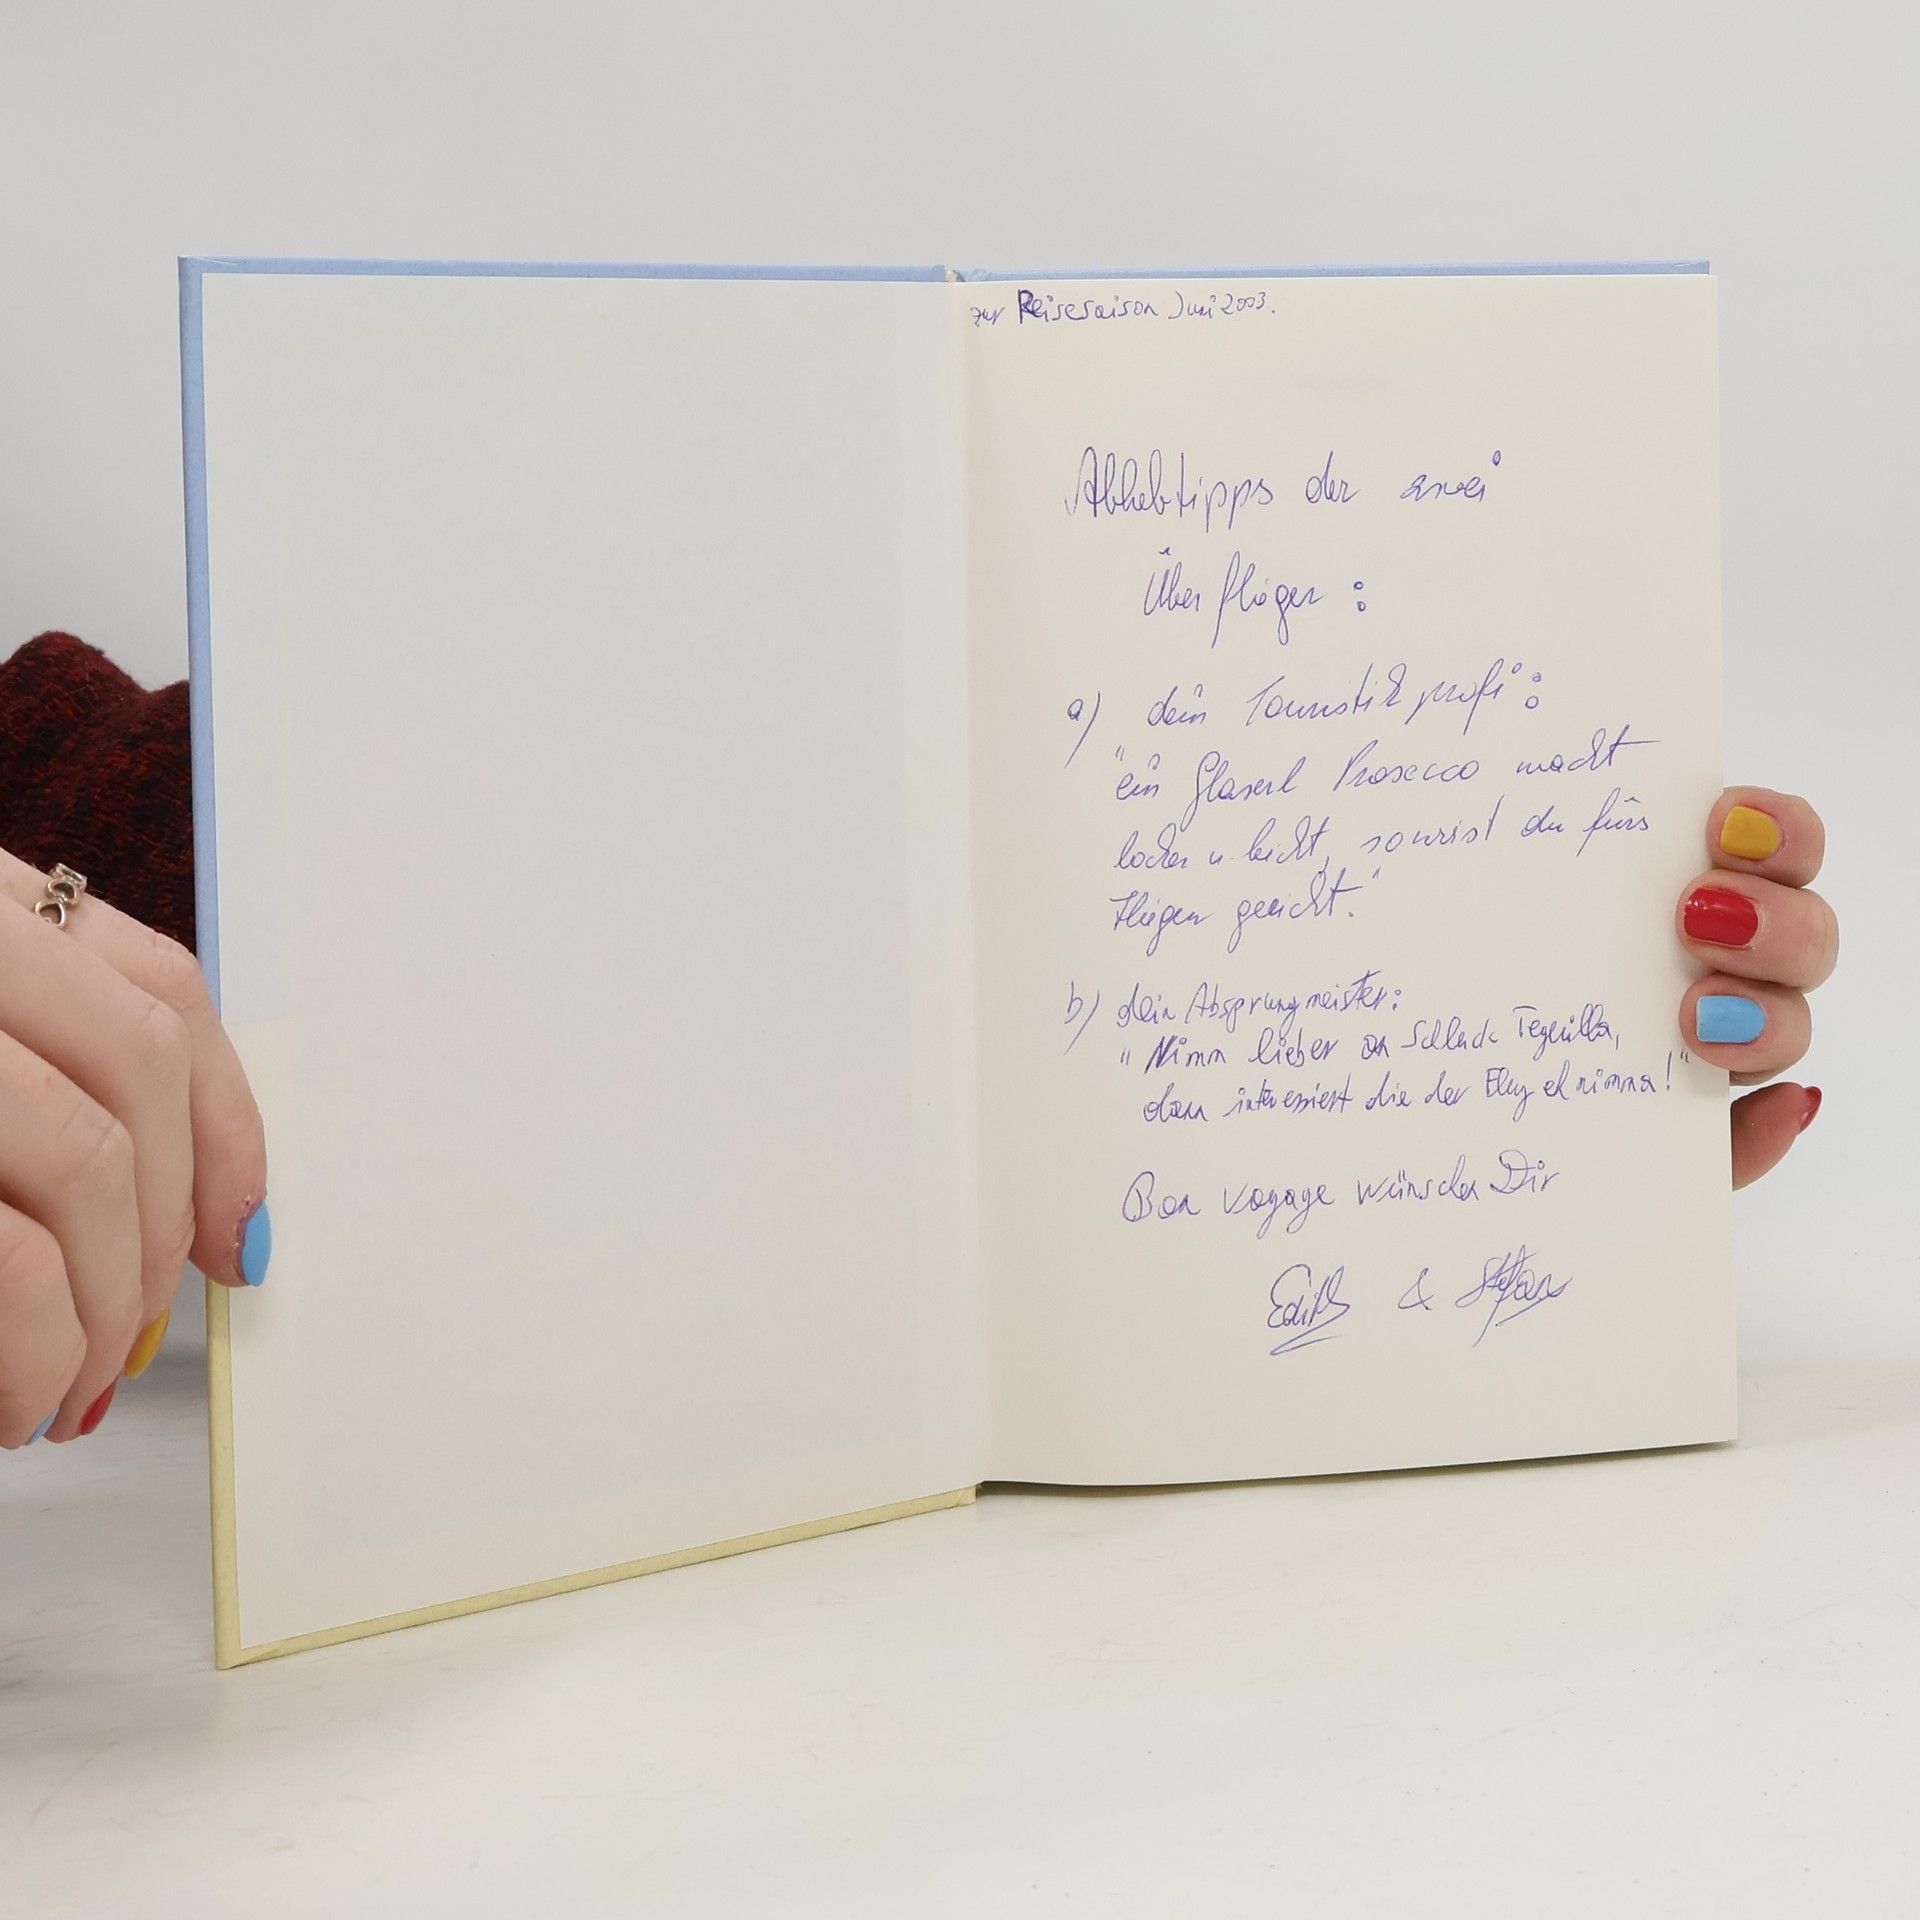 zur Reisesaison Juni 2003.
Abhebtipps der zwei
Überflieger :
a) dein Touristikprofi :
"ein Glaserl Prosecco macht
locker u. leicht, so wirst du fürs
Fliegen geeicht."
b) dein Absprungmeister:
"Nimm lieber an Schluck Tequilla,
dann interessiert die der Flug eh nimma!"
Bon voyage wünschen Dir
Edith & Stefan